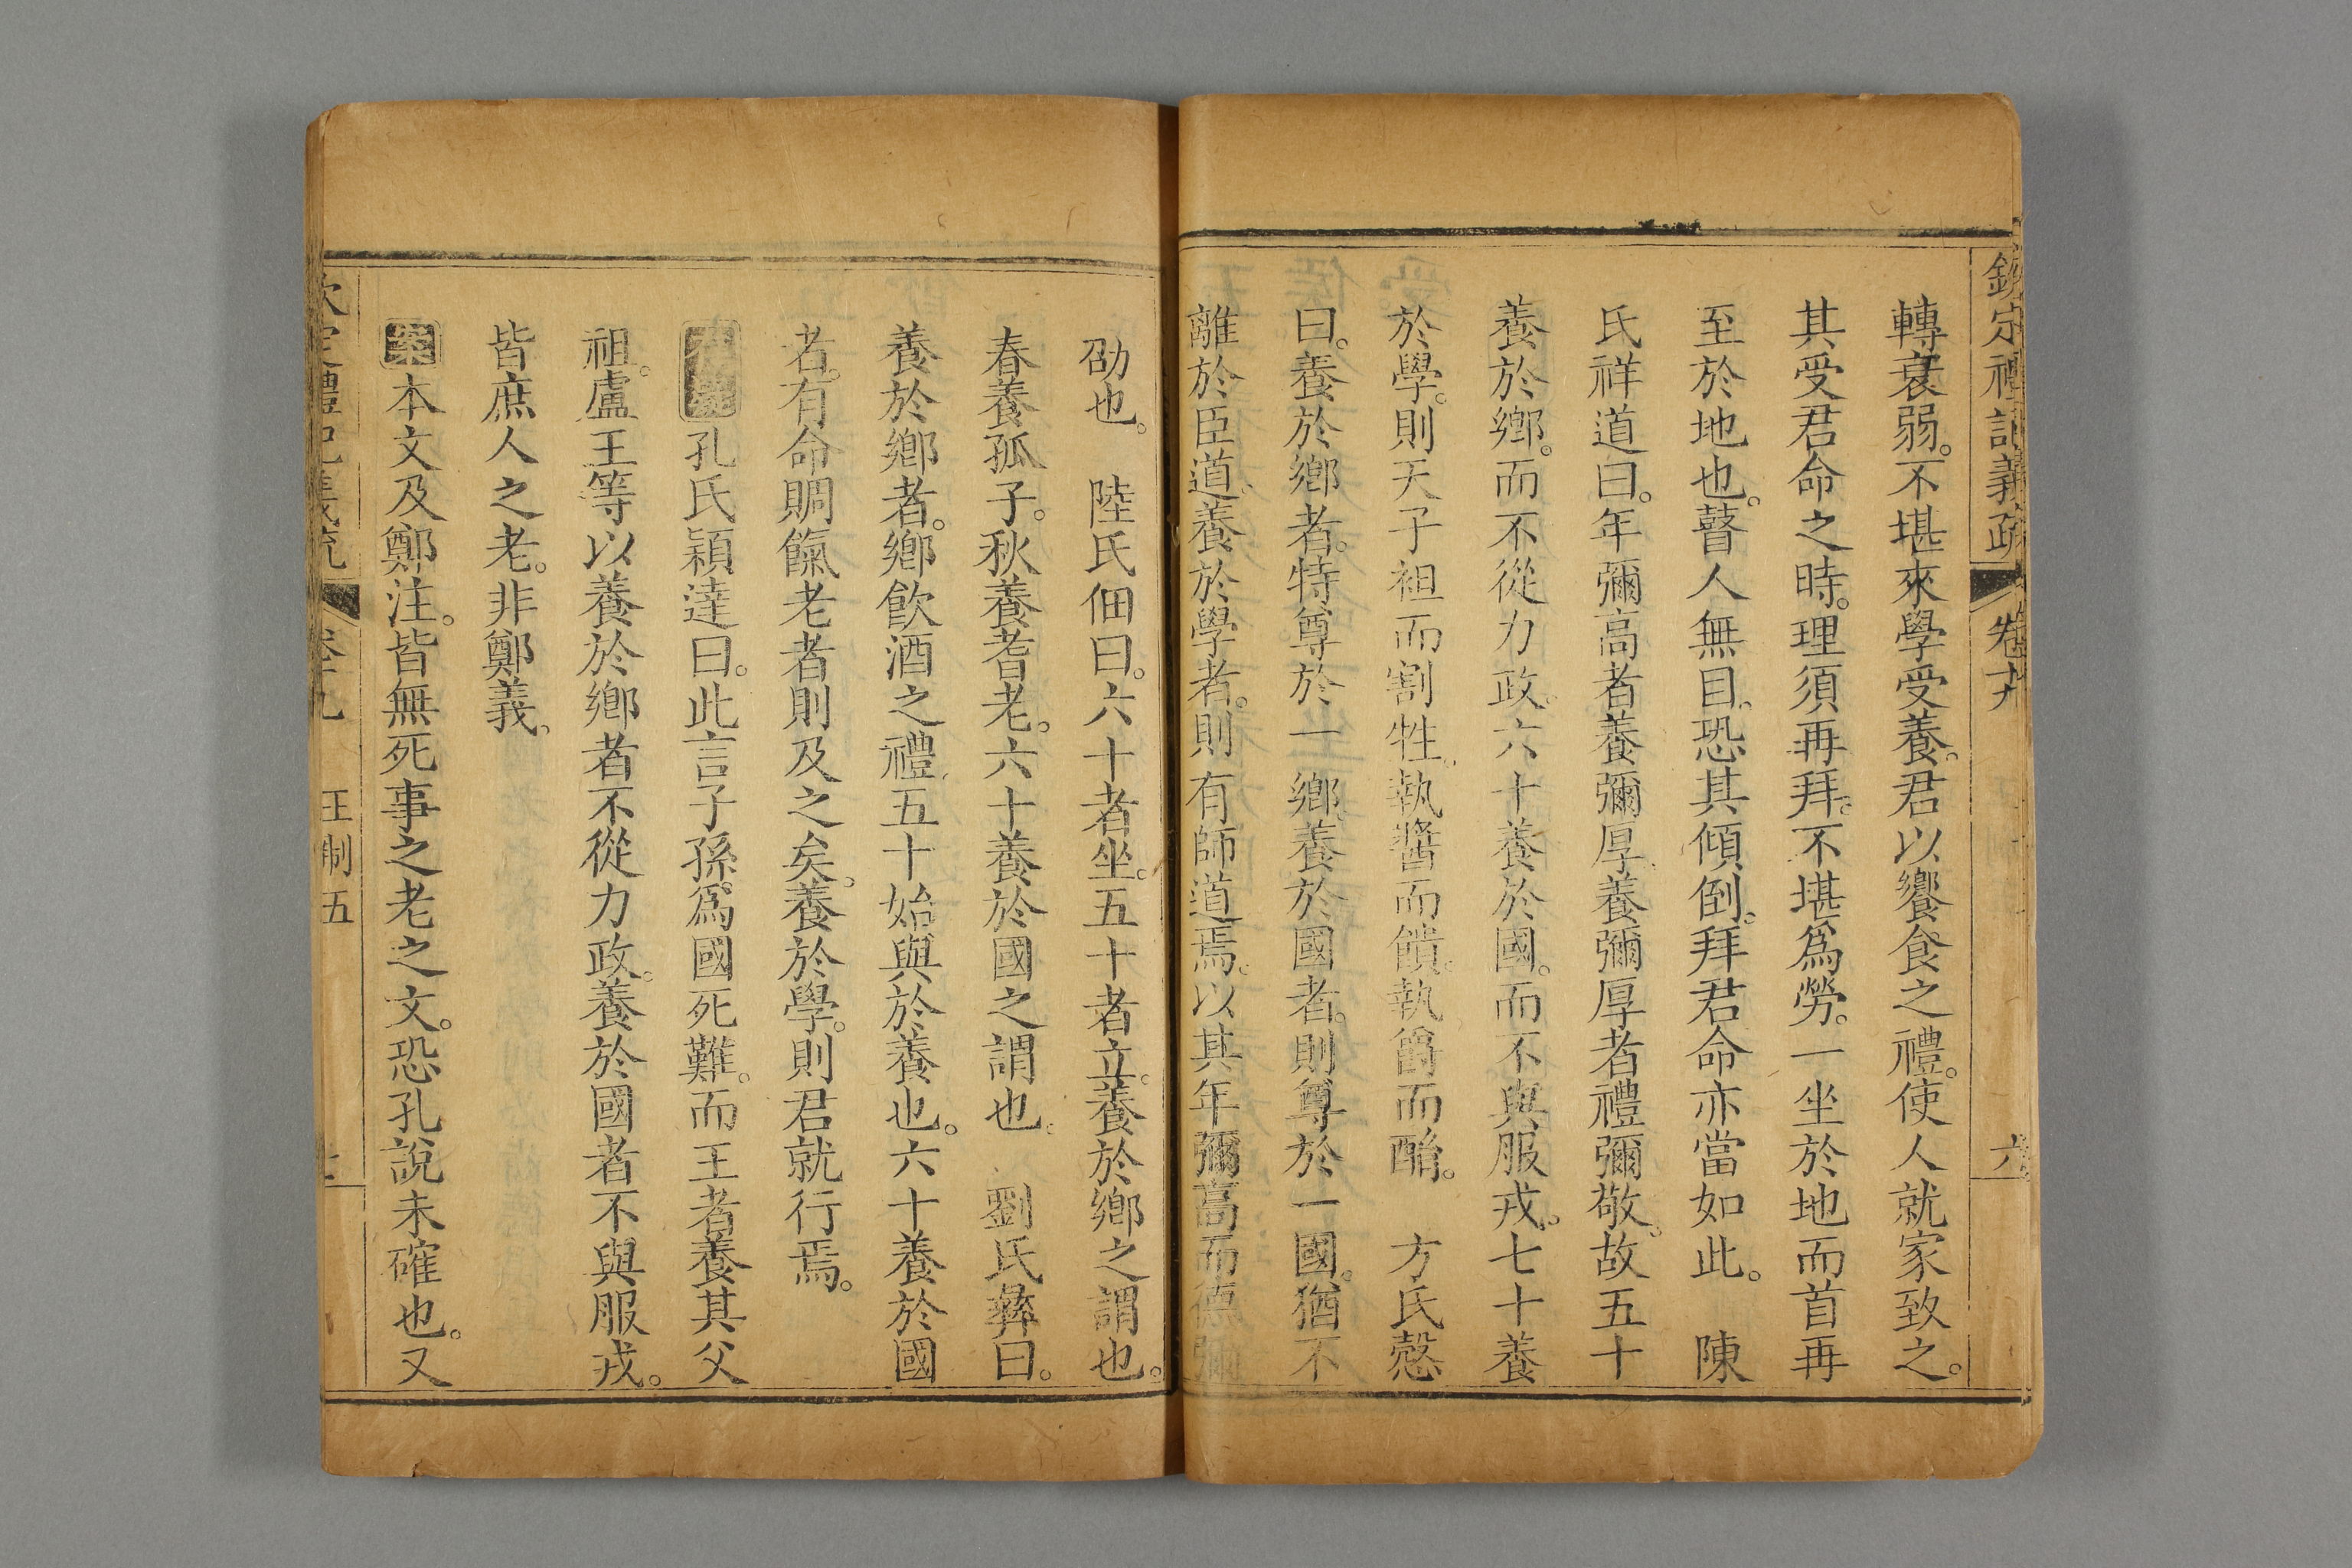 欽定禮記義疏 卷十九 六
轉衰弱。不堪來學受養。君以饗食之禮。使人就家致之。
其受君命之時。理須再拜。不堪爲勞。一坐於地而首再
至於地也。瞽人無目。恐其傾倒。拜君命亦當如此。 陳
氏祥道曰。年彌高者養彌厚。養彌厚者禮彌敬。故五十
養於鄉。而不從力政。六十養於國。而不與服戎。七十養
於學。則天子袒而割牲。執醬而饋。執爵而酳。 方氏慤
曰。養於鄉者。特尊於一鄉。養於國者。則尊於一國。猶不
離於臣道。養於學者。則有師道焉。以其年彌高而德彌
劭也。 陸氏佃曰。六十者坐。五十者立。養於鄉之謂也。
春養孤子。秋養耆老。六十養於國之謂也。 劉氏彝曰。
養於鄉者。鄉飲酒之禮。五十始與於養也。六十養於國
者。有命賙餼老者則及之矣。養於學。則君就行焉。
存疑 孔氏穎達曰。此言子孫爲國死難。而王者養其父
祖。盧王等以養於鄉者不從力政。養於國者不與服戎。
皆庶人之老。非鄭義。
案 本文及鄭注。皆無死事之老之文。恐孔說未確也。又
欽定禮記義疏 卷十九 王制五